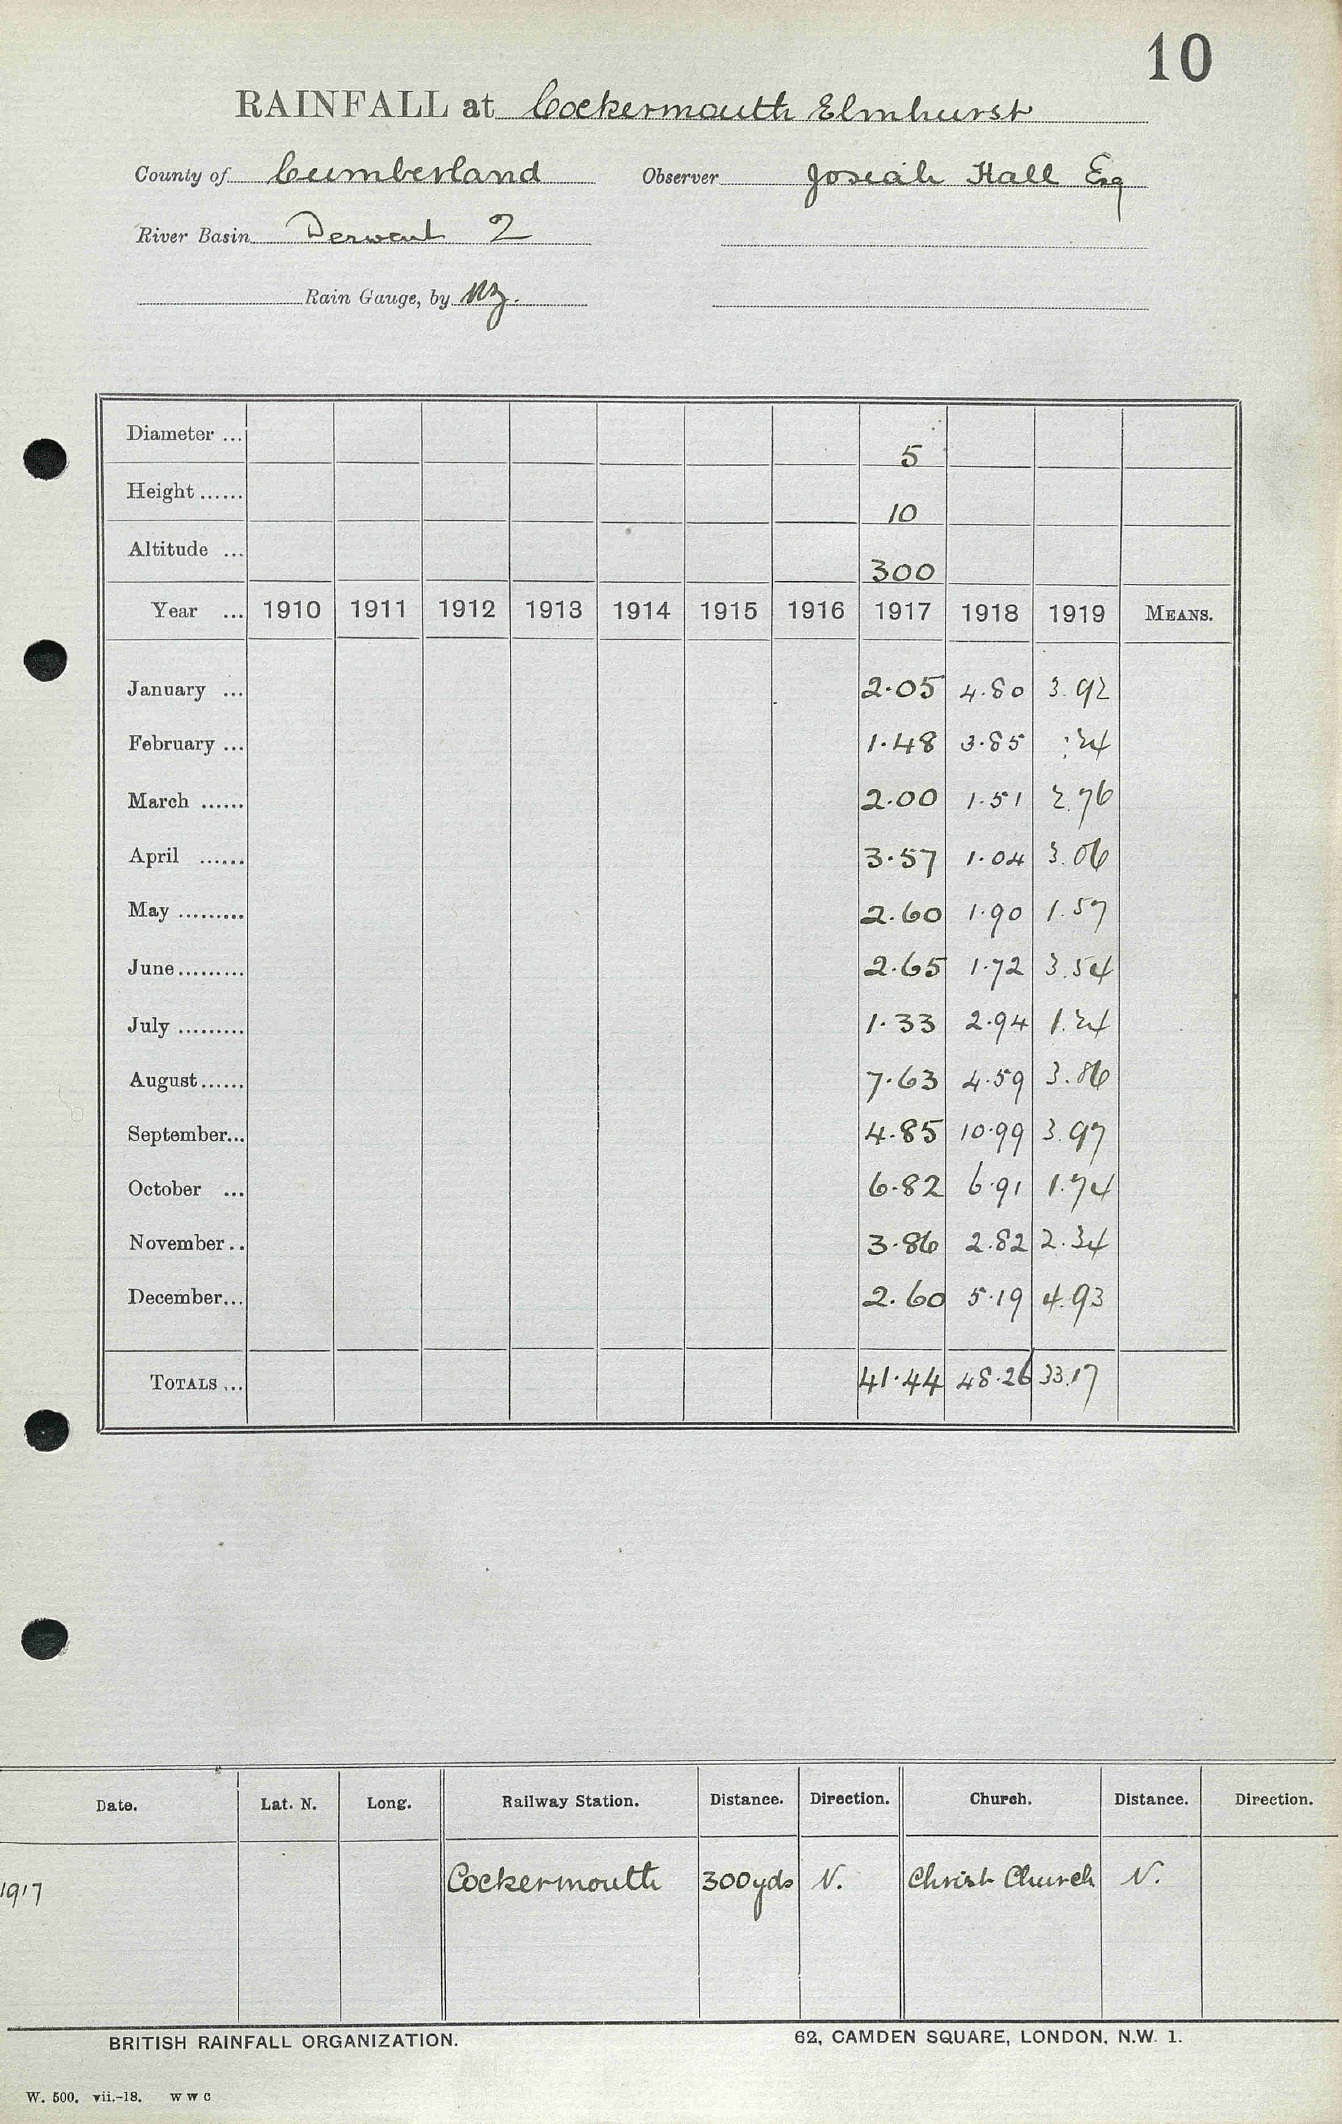 10
RAINFALL at Cockermouth Elmhurst
County of Cumberland Observer Josiah Hall Esq
River Basin Derwent 2
Rain Gauge, by
Diameter ... 5
Height...... 10
Altitude ... 300
Year ... 1910 1911 1912 1913 1914 1915 1916 1917 1918 1919 MEANS.
January ... 2.05 4.80 3.92
February ... 1.48 3.85 .24
March ...... 2.00 1.51 2.76
April ...... 3.57 1.04 3.06
May ......... 2.60 1.90 1.57
June......... 2.65 1.72 3.54
July ......... 1.33 2.94 1.24
August...... 7.63 4.59 3.86
September... 4.85 10.99 3.97
October ... 6.82 6.91 1.74
November.. 3.86 2.82 2.34
December... 2.60 5.19 4.93
TOTALS ... 41.44 48.26 33.17
Date. Lat. N. Long. Railway Station. Distance. Direction. Church. Distance. Direction.
1917 Cockermouth 300yds N. Christ Church N.
BRITISH RAINFALL ORGANIZATION. 62, CAMDEN SQUARE, LONDON, N.W. 1.
W. 500. vii.-18. W W C